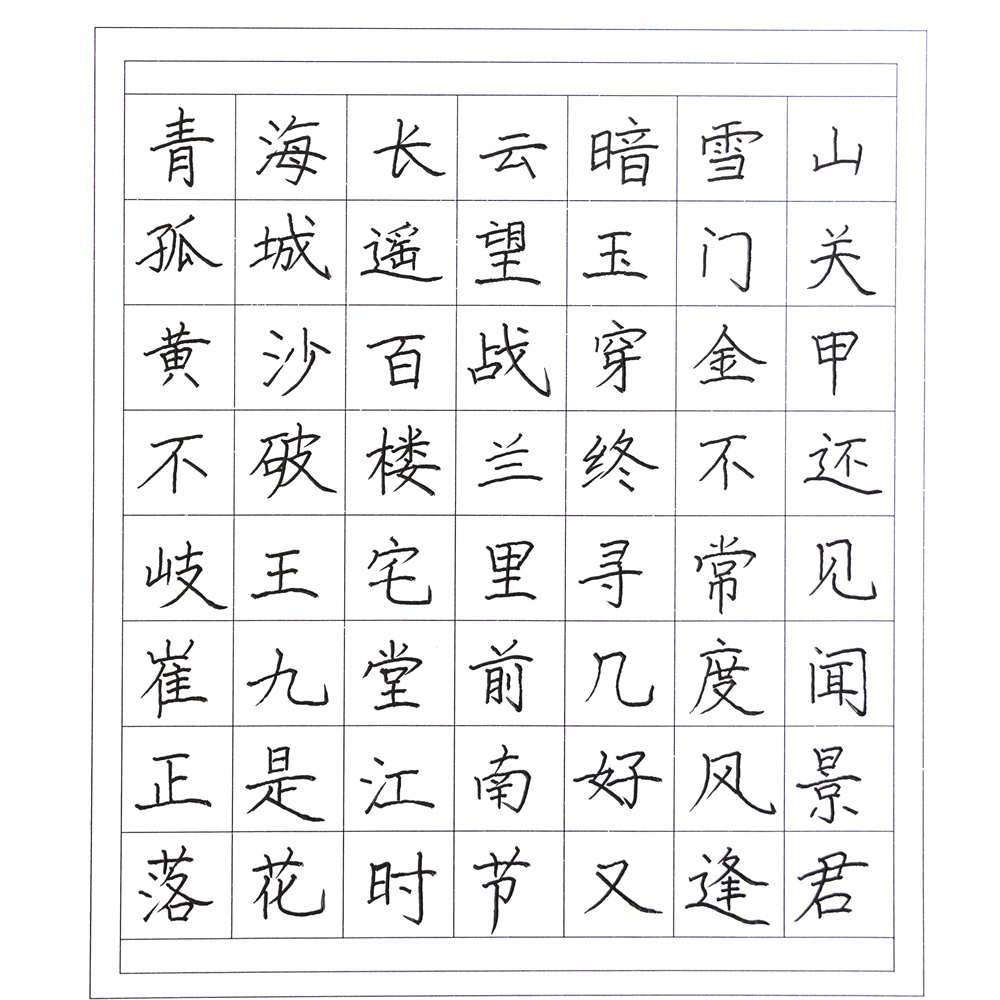 青海长云暗雪山
孤城遥望玉门关
黄沙百战穿金甲
不破楼兰终不还
岐王宅里寻常见
崔九堂前几度闻
正是江南好风景
落花时节又逢君